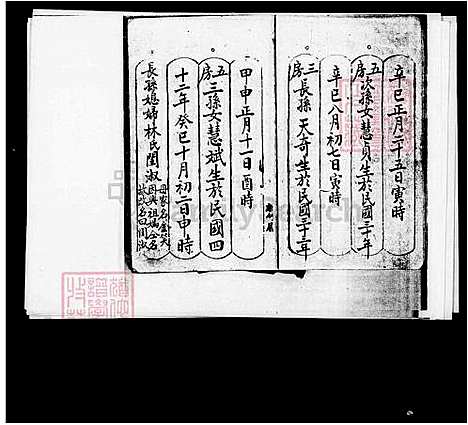 辛巳正月二十五日寅時
五房次孫女慧貞生於民國三十年
辛巳八月初七日寅時
三房長孫天奇生於民國三十三年
甲申正月十一日酉時
五房三孫女慧斌生於民國四
十二年癸巳十月初二日申時
長孫媳婦林氏閨淑
因與祖媽仝名
故改名曰閨淑